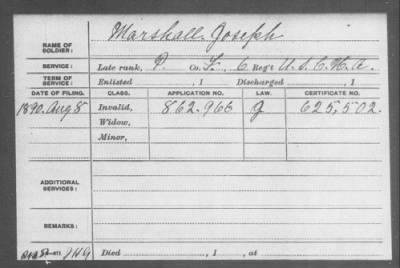 Marshall, Joseph
NAME OF SOLDIER:
SERVICE: Late rank, P. Co. F, 6 Reg't U. S. C. H. A.
TERM OF SERVICE: Enlisted , 1 Discharged , 1
DATE OF FILING. CLASS. APPLICATION NO. LAW. CERTIFICATE NO.
1890. Aug 8 Invalid, 862.966 J 625,502.
Widow,
Minor,
ADDITIONAL SERVICES:
REMARKS:
Died , 1 , at